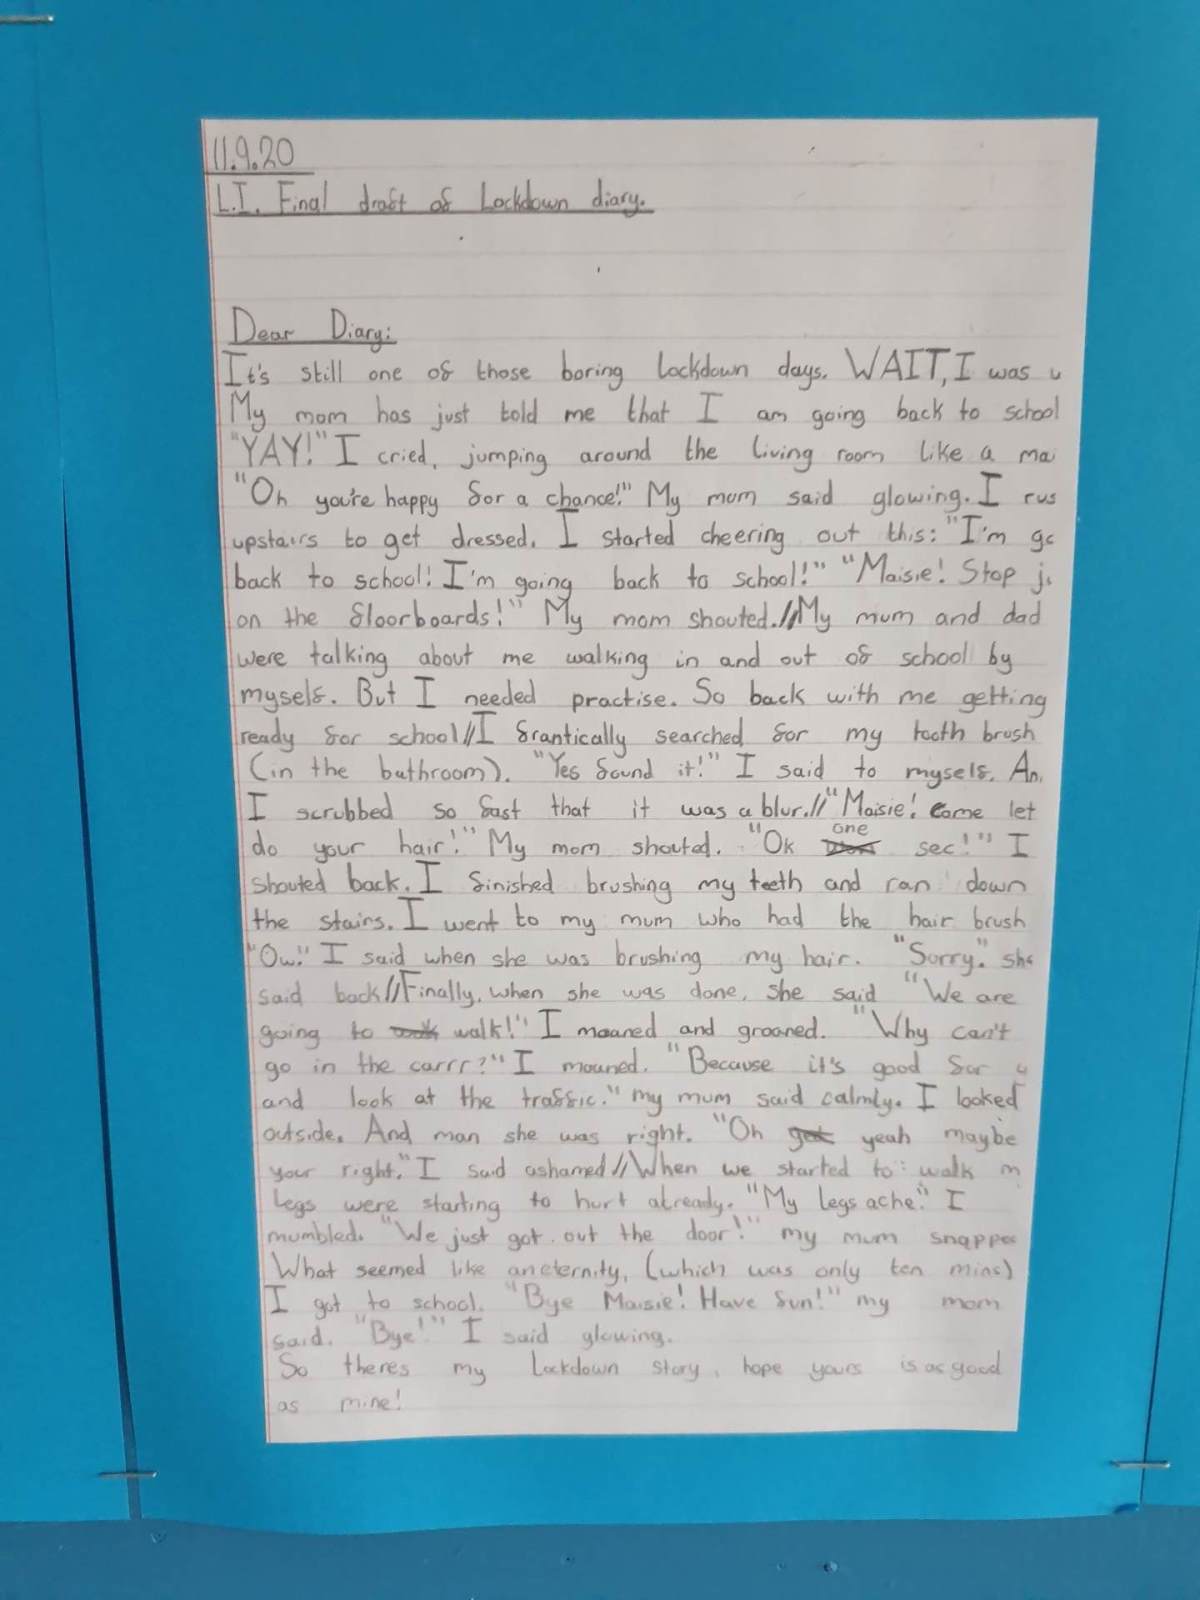 11.9.20
L.I. Final draft of Lockdown diary.
Dear Diary:
It's still one of those boring lockdown days. WAIT, I was
My mom has just told me that I am going back to school
"YAY!" I cried, jumping around the living room like a
"Oh you're happy for a chance!" My mum said glowing. I
upstairs to get dressed. I started cheering out this: "I'm
back to school! I'm going back to school!" "Maisie! Stop
on the floorboards!" My mom shouted.//My mum and dad
were talking about me walking in and out of school by
myself. But I needed practise. So back with me getting
ready for school//I frantically searched for my tooth brush
(in the bathroom). "Yes found it!" I said to myself.
I scrubbed so fast that it was a blur.//"Maisie! Come let
do your hair!" My mom shouted. "Ok one sec!" I
shouted back. I finished brushing my teeth and ran down
the stairs. I went to my mum who had the hair brush
"Ow." I said when she was brushing my hair. "Sorry." she
said back//Finally, when she was done, she said "We are
going to walk!" I moaned and groaned. "Why can't
go in the carrr?" I moaned. "Because it's good for
and look at the traffic." my mum said calmly. I looked
outside. And man she was right. "Oh yeah maybe
your right." I said ashamed//When we started to walk
legs were starting to hurt already. "My legs ache." I
mumbled. "We just got out the door!" my mum
What seemed like an eternity, (which was only ten mins)
I got to school. "Bye Maisie! Have fun!" my mom
said. "Bye!" I said glowing.
So theres my Lockdown story, hope yours is as good
as mine!